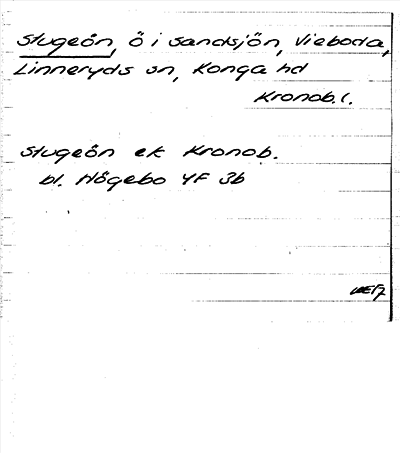 Stugeön, Ö i Sandsjön, Vieboda,
Linneryds sn, Konga hd
Kronob. l.
Stugeön ek Kronob.
bl. Högebo 4F 3b